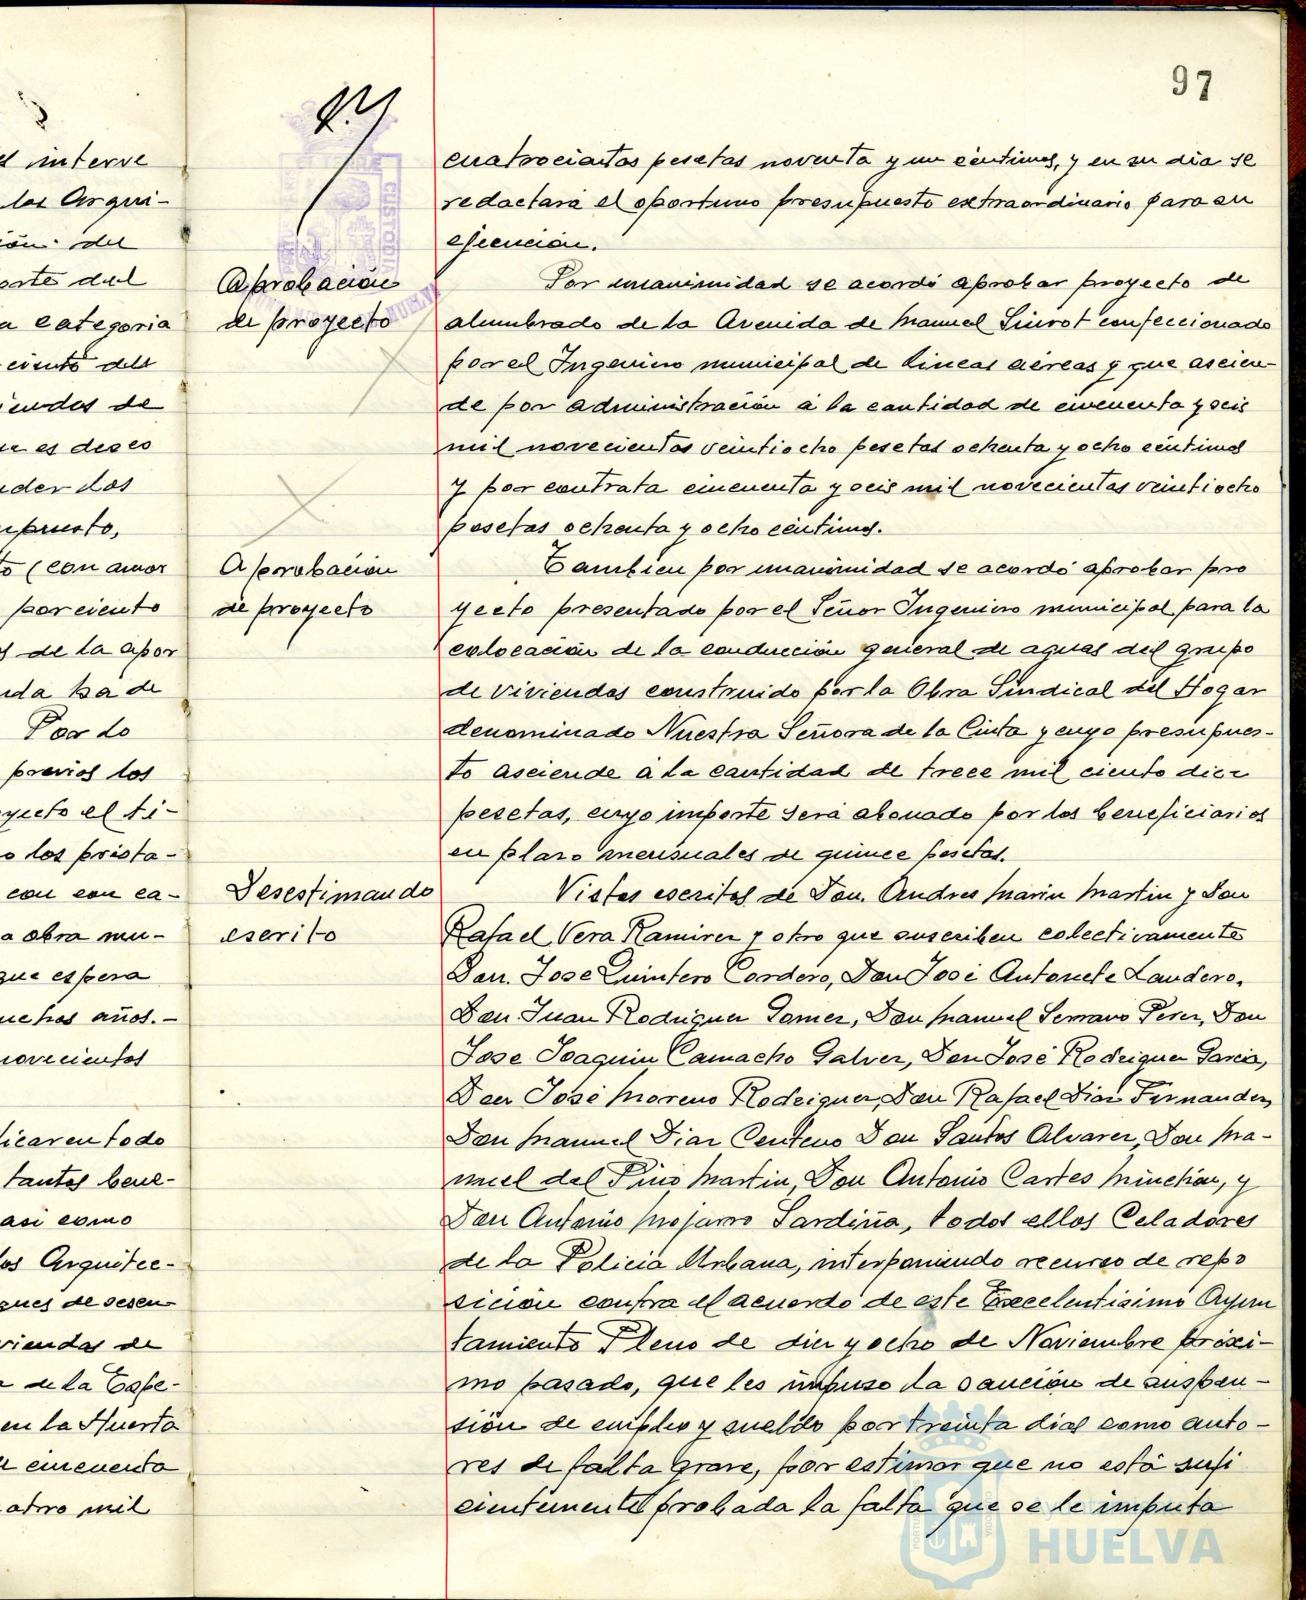 97
cuatrocientas pesetas noventa y un céntimos, y en su dia se
redactará el oportuno presupuesto extraordinario para su
ejecución.
Aprobación
de proyecto
Por unanimidad se acordó aprobar proyecto de
alumbrado de la Avenida de Manuel Siurot confeccionado
por el Ingeniero municipal de lineas aéreas y que ascien-
de por administración á la cantidad de cincuenta y seis
mil novecientas veintiocho pesetas ochenta y ocho céntimos
y por contrata cincuenta y seis mil novecientas veintiocho
pesetas ochenta y ocho céntimos.
Aprobación
de proyecto
Tambien por unanimidad se acordó aprobar pro
yecto presentado por el Señor Ingeniero municipal para la
colocación de la conducción general de aguas del grupo
de viviendas construido por la Obra Sindical del Hogar
denominado Nuestra Señora de la Cinta y cuyo presupues-
to asciende á la cantidad de trece mil ciento diez
pesetas, cuyo importe será abonado por los beneficiarios
en plazo mensuales de quince pesetas.
Desestimando
escrito
Vistos escritos de Don. Andres Marin Martin y Don
Rafael Vera Ramirez y otro que suscriben colectivamente
Don. Jose Quintero Cordero, Don José Antonete Landero,
Don Juan Rodriguez Gomez, Don Manuel Serrano Perez, Don
Jose Joaquin Camacho Galvez, Don José Rodriguez Garcia,
Don José Moreno Rodriguez, Don Rafael Diaz Fernandez,
Don Manuel Diaz Centeno Don Santos Alvarez, Don Ma-
nuel del Pino Martin, Don Antonio Cartes Minchón, y
Don Antonio Mojarro Sardiña, todos ellos Celadores
de la Policia Urbana, interponiendo recurso de repo
sición contra el acuerdo de este Excelentisimo Ayun
tamiento Pleno de diez y ocho de Noviembre próxi-
mo pasado, que les impuso la sanción de suspen-
sión de empleo y sueldo por treinta dias como auto-
res de falta grave, por estimar que no está sufi
cientemente probada la falta que se le imputa
interve
los Arqui-
ión del
orte del
a categoria
ciento del
iendas de
es deseo
nder las
upuesto,
to (con amor
por ciento
s de la apor
nda ha de
Por lo
previos los
yecto el ti-
o los présta-
con ca-
a obra mu-
que espera
uchos años.-
novecientas
ficar en todo
tantos bene-
asi como
los Arquitec-
ques de sesen
viendas de
de la Espe-
en la Huerta
cincuenta
atro mil
CUSTODI
HUELVA
HUELVA